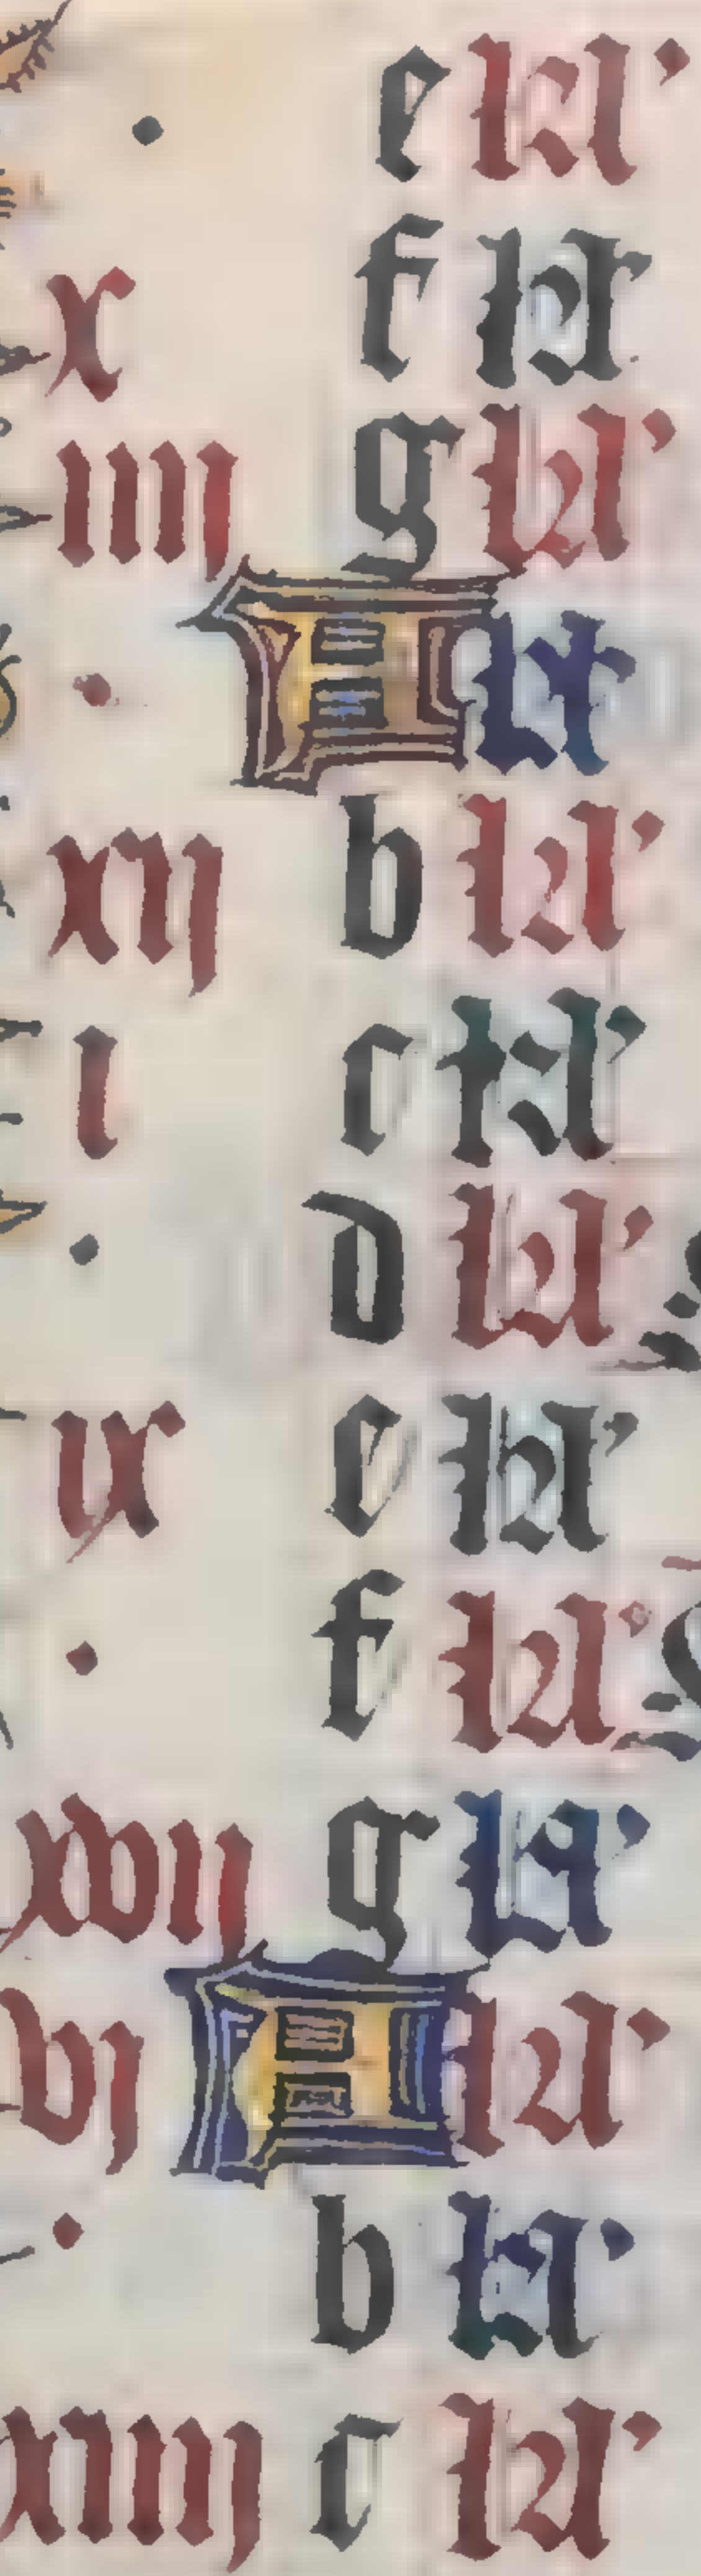 . e kl'
x f kl'
iiij g kl'
. A kl'
xij b kl'
i c kl'
. d kl'
ix e kl'
. f kl'
xvij g kl'
vj A kl'
. b kl'
xiiij c kl'